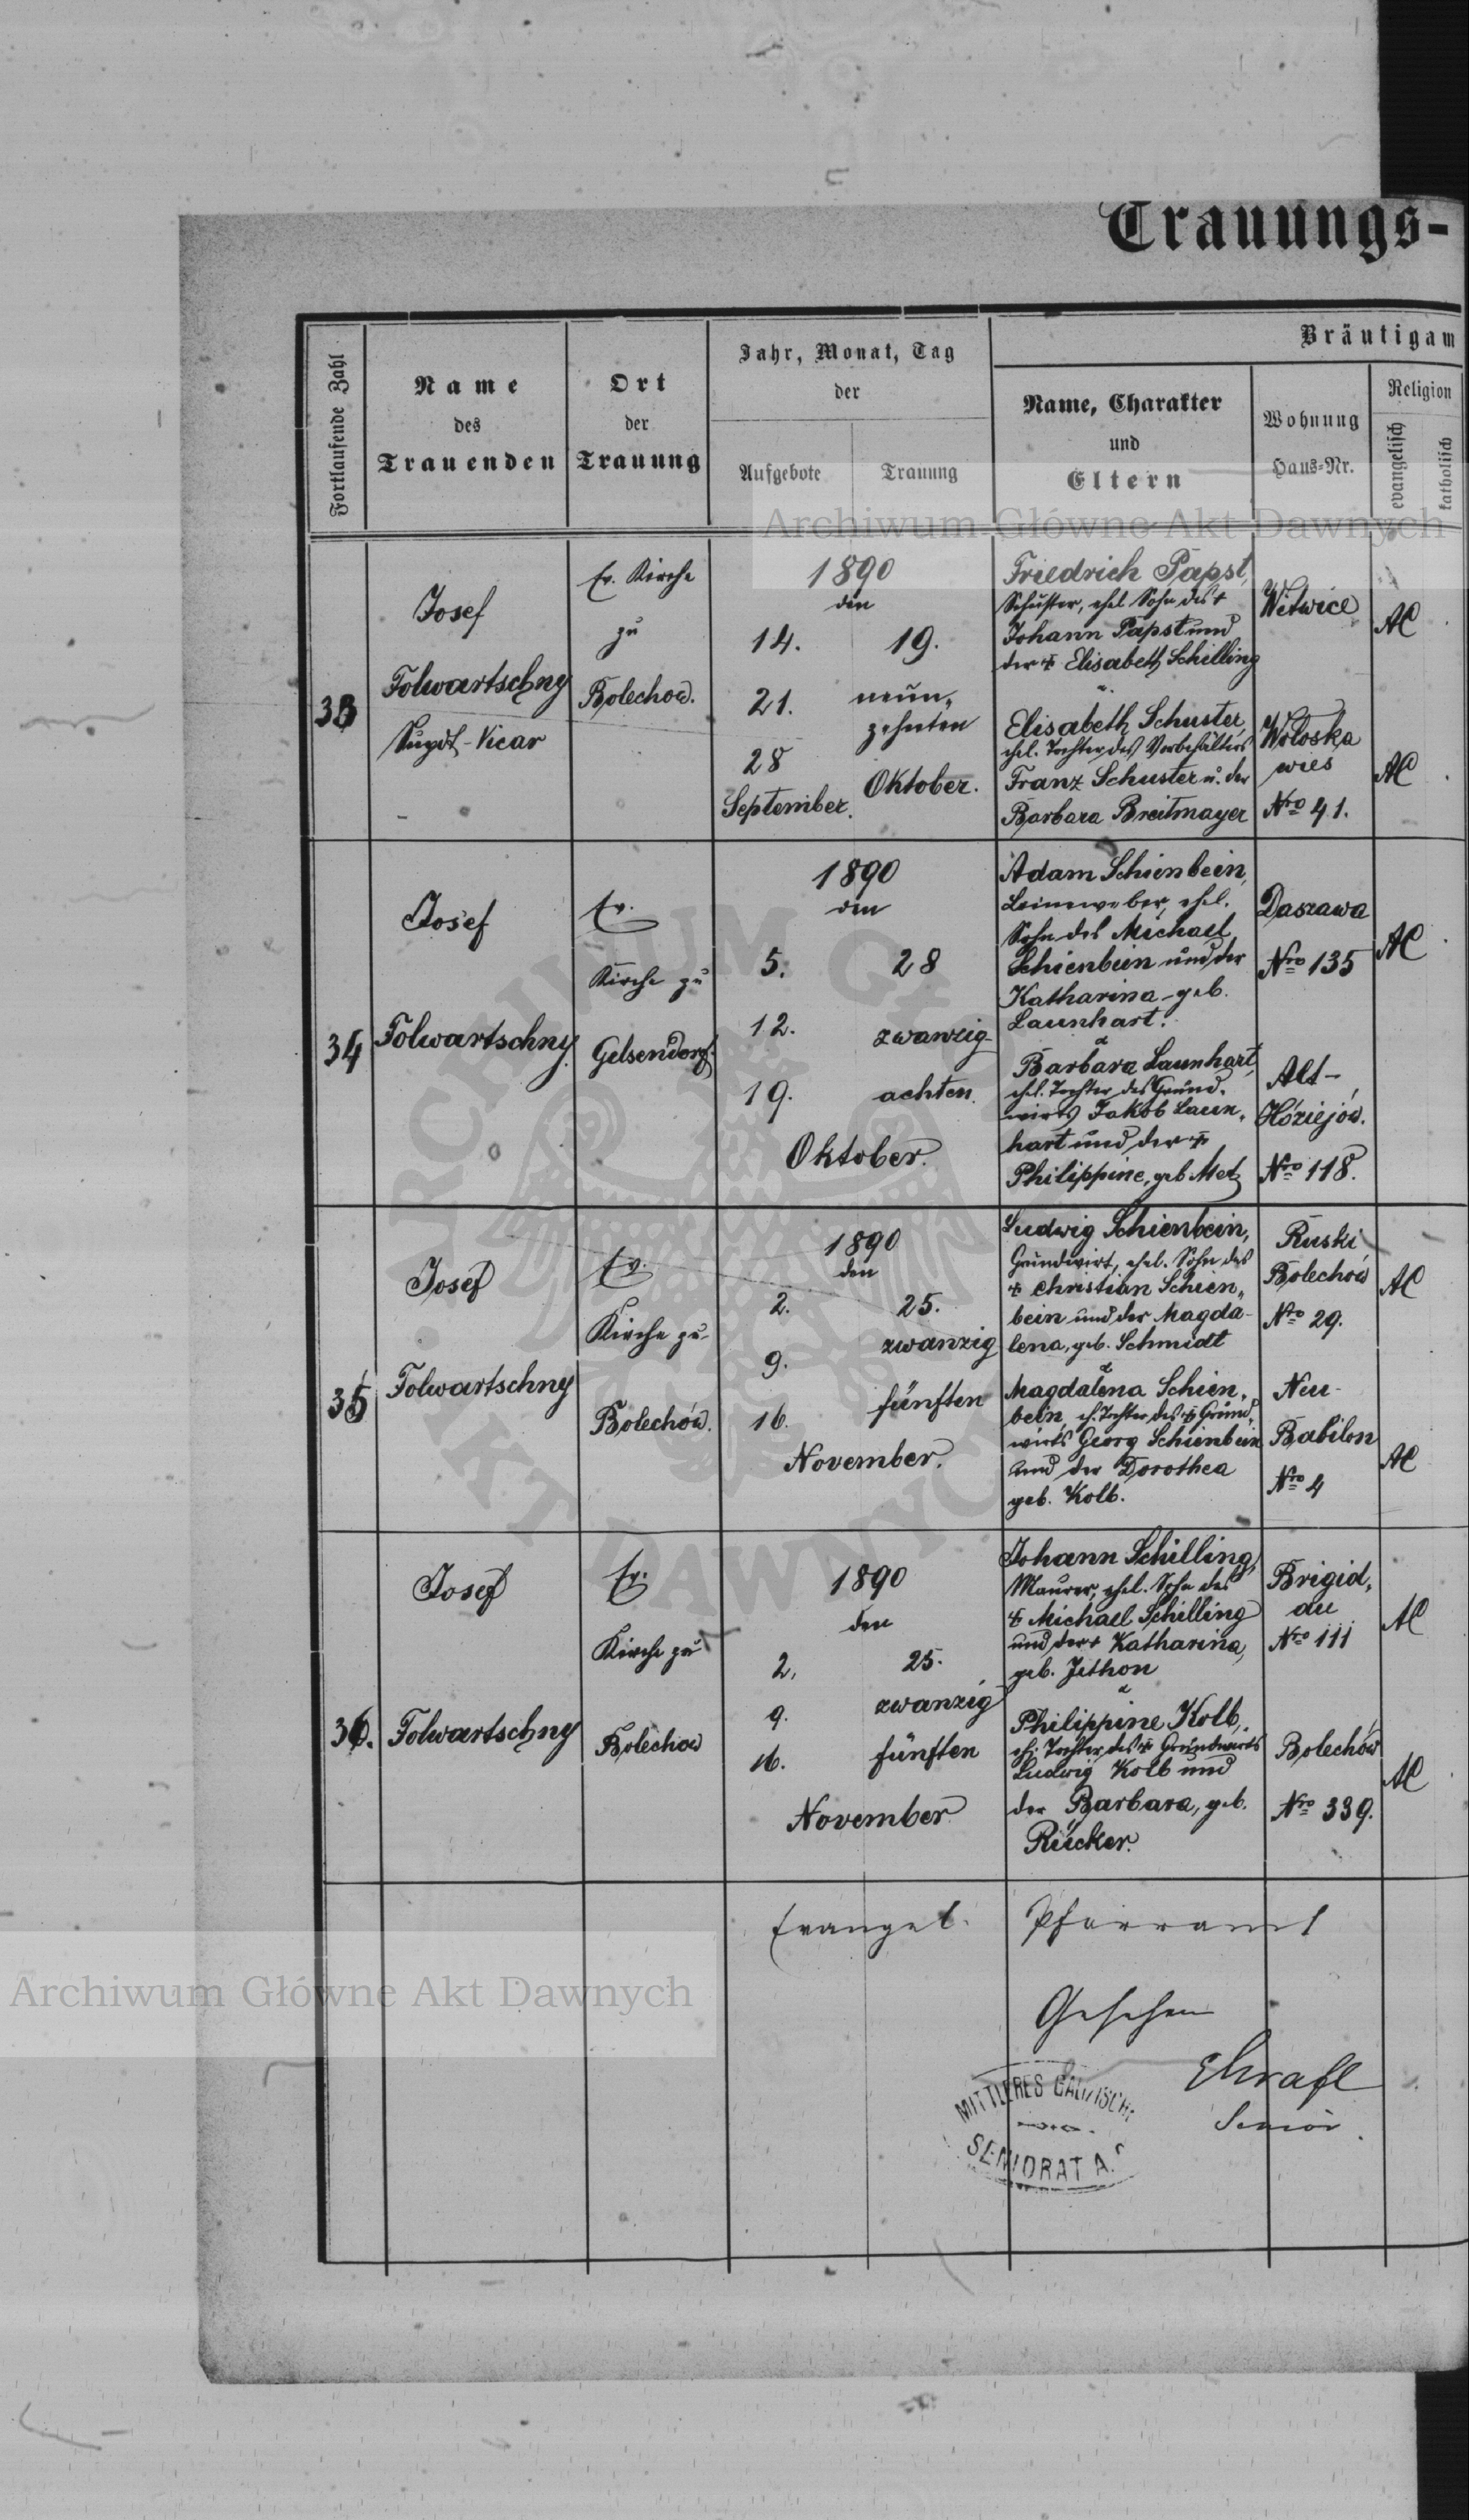 Trauungs-
Fortlaufende Zahl
Name
des
Trauenden
Ort
der
Trauung
Jahr, Monat, Tag
der
Aufgebote
Trauung
Bräutigam
Name, Charakter
und
Eltern
Wohnung
Haus-Nr.
Religion
evangelisch
katholisch
Archiwum Główne Akt Dawnych
33
Josef
Folwartschny
Supdt-Vicar
Ev. Kirche
zu
Bolechow.
1890
den
14.
21.
28
September.
19.
neun-
zehnten
Oktober.
Friedrich Papst,
Schuster, ehel. Sohn des +
Johann Papst und
der + Elisabeth Schilling
Wetwice
AC
Elisabeth Schuster,
ehel. Tochter des Vorbehälters
Franz Schuster u. der
Barbara Breitmayer
Woloska
wies
Nro 41.
AC
34
Josef
Folwartschny.
Ev.
Kirche zu
Gelsendorf.
1890
den
5.
12.
19.
28
zwanzig-
achten.
Oktober.
Adam Schienbein,
Leineweber, ehel.
Sohn des Michael
Schienbein und der
Katharina geb.
Launhart.
Daszawa
Nro 135
AC
&
Barbara Launhart,
ehel. Tochter des Grund-
wirts Jakob Laun-
hart und der +
Philippine, geb. Metz
Alt-
Nro 118.
35
Josef
Folwartschny
Ev.
Kirche zu
Bolechów.
1890
den
2.
9.
16.
25.
zwanzig
fünften
November.
Ludwig Schienbein,
Grundwirt, ehel. Sohn des
+ Christian Schien-
bein und der Magda-
lena, geb. Schmidt
Ruski
Bolechow
Nro 29.
AC
&
Magdalena Schien-
bein, eh. Tochter des + Grund-
wirts Georg Schienbein
und der Dorothea
geb. Kolb.
Neu-
Babilon
Nro 4
AC
36.
Josef
Folwartschny
Ev.
Kirche zu
Bolechow
1890
den
2.
9.
16.
25.
zwanzig
fünften
November
Johann Schilling,
Maurer, ehel. Sohn des
+ Michael Schilling
und der + Katharina,
geb. Jethon
Brigid-
au
Nro 111
AC
&
Philippine Kolb,
eh. Tochter des + Grundwirts
Ludwig Kolb und
der Barbara, geb.
Rücker.
Bolechów
Nro 339.
AC
Evangel. Pfarramt
Gesehen
Senior.
MITTLERES GALIZISCHE
SENIORAT A.C.
Archiwum Główne Akt Dawnych
ARCHIWUM GŁÓWNE
AKT DAWNYCH